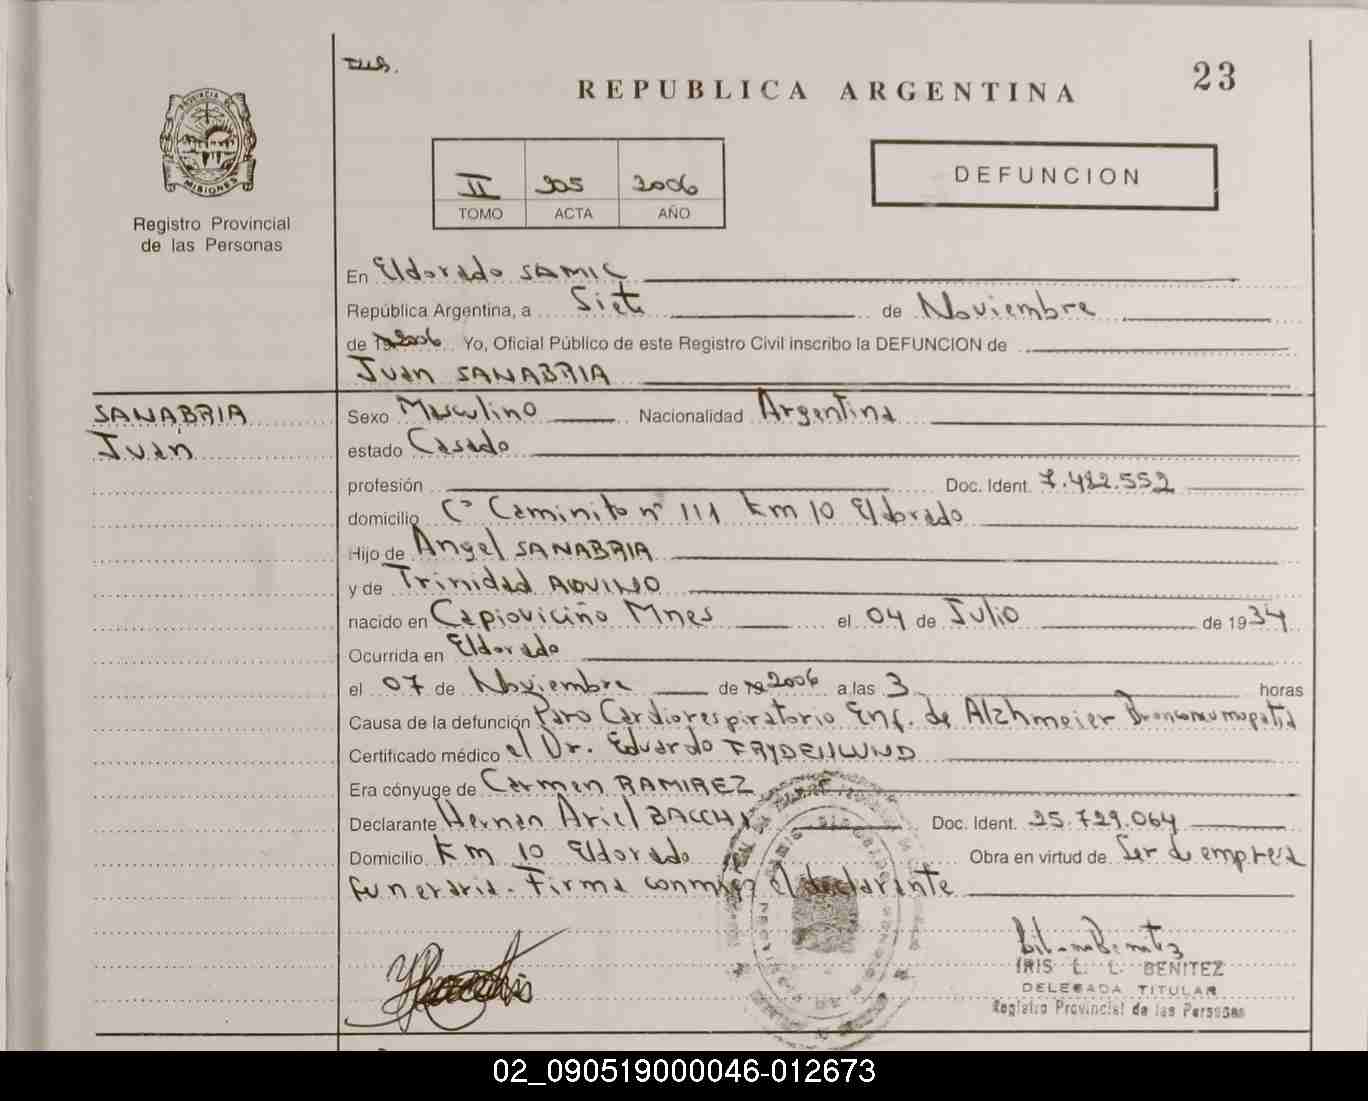 23
REPUBLICA ARGENTINA
PROVINCIA DE
MISIONES
Registro Provincial
de las Personas
II 305 2006
TOMO ACTA AÑO
DEFUNCION
En Eldorado SAMIC
República Argentina, a Siete de Noviembre
de 19 2006 Yo, Oficial Público de este Registro Civil inscribo la DEFUNCION de
Juan SANABRIA
SANABRIA
Juan
Sexo Masculino Nacionalidad Argentina
estado Casado
profesión Doc. Ident. 7.422.552
domicilio Cº Caminito nº 111 km 10 Eldorado
Hijo de Angel SANABRIA
y de Trinidad AQUINO
nacido en Capioviciño Mnes el 04 de Julio de 1934
Ocurrida en Eldorado
el 07 de Noviembre de 19 2006 a las 3 horas
Causa de la defunción Paro Cardiorespiratorio Enf. de Alzhmeier Bronconeumopatia
Certificado médico el Dr. Eduardo FRYDENLUND
Era cónyuge de Carmen RAMIREZ
Declarante Hernan Ariel BACCHI Doc. Ident. 25.729.064
Domicilio Km 10 Eldorado Obra en virtud de Ser de empresa
funeraria. Firma conmigo el declarante
IRIS L. L. BENITEZ
DELEGADA TITULAR
Registro Provincial de las Personas
02_090519000046-012673